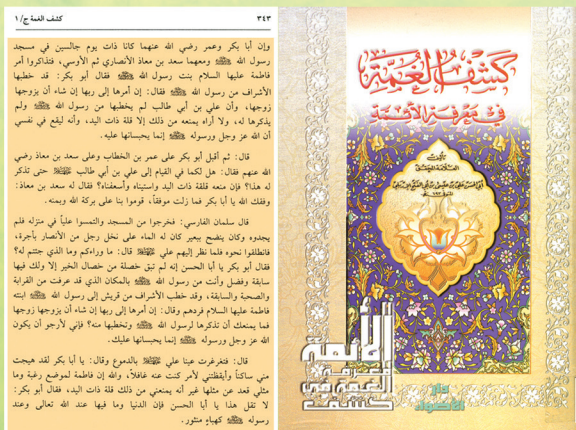 ٣٤٣
كشف الغمة ج/١
وإن أبا بكر وعمر رضي الله عنهما كانا ذات يوم جالسين في مسجد
رسول الله ﷺ ومعهما سعد بن معاذ الأنصاري ثم الأوسي، فتذاكروا أمر
فاطمة عليها السلام بنت رسول الله ﷺ فقال أبو بكر: قد خطبها
الأشراف من رسول الله ﷺ فقال: إن أمرها إلى ربها إن شاء أن يزوجها
زوجها، وأن علي بن أبي طالب لم يخطبها من رسول الله ﷺ ولم
يذكرها له، ولا أراه يمنعه من ذلك إلا قلة ذات اليد، وأنه ليقع في نفسي
أن الله عز وجل ورسوله ﷺ إنما يحبسانها عليه.
قال: ثم أقبل أبو بكر على عمر بن الخطاب وعلى سعد بن معاذ رضي
الله عنهم فقال: هل لكما في القيام إلى علي بن أبي طالب حتى نذكر
له هذا؟ فإن منعه قلة ذات اليد واسيناه وأسعفناه؟ فقال له سعد بن معاذ:
وفقك الله يا أبا بكر فما زلت موفقاً، قوموا بنا على بركة الله ويمنه.
قال سلمان الفارسي: فخرجوا من المسجد والتمسوا علياً في منزله فلم
يجدوه وكان ينضح ببعير كان له الماء على نخل رجل من الأنصار بأجرة،
فانطلقوا نحوه فلما نظر إليهم علي قال: ما وراءكم وما الذي جئتم له؟
فقال أبو بكر يا أبا الحسن إنه لم تبق خصلة من خصال الخير إلا ولك فيها
سابقة وفضل وأنت من رسول الله ﷺ بالمكان الذي قد عرفت من القرابة
والصحبة والسابقة، وقد خطب الأشراف من قريش إلى رسول الله ﷺ ابنته
فاطمة عليها السلام فردهم وقال: إن أمرها إلى ربها إن شاء أن يزوجها زوجها
فما يمنعك أن تذكرها لرسول الله ﷺ وتخطبها منه؟ فإني لأرجو أن يكون
الله عز وجل ورسوله ﷺ إنما يحبسانها عليك.
قال: فتغرغرت عينا علي بالدموع وقال: يا أبا بكر لقد هيجت
مني ساكناً وأيقظتني لأمر كنت عنه غافلاً، والله إن فاطمة لموضع رغبة وما
مثلي قعد عن مثلها غير أنه يمنعني من ذلك قلة ذات اليد، فقال أبو بكر:
لا تقل هذا يا أبا الحسن فإن الدنيا وما فيها عند الله تعالى وعند
رسوله ﷺ كهباء منثور.
كشف الغمة
في معرفة الأئمة
تأليف
العلامة المحقق
كشف
الغمة في
معرفة
الأئمة
دار
الأضواء